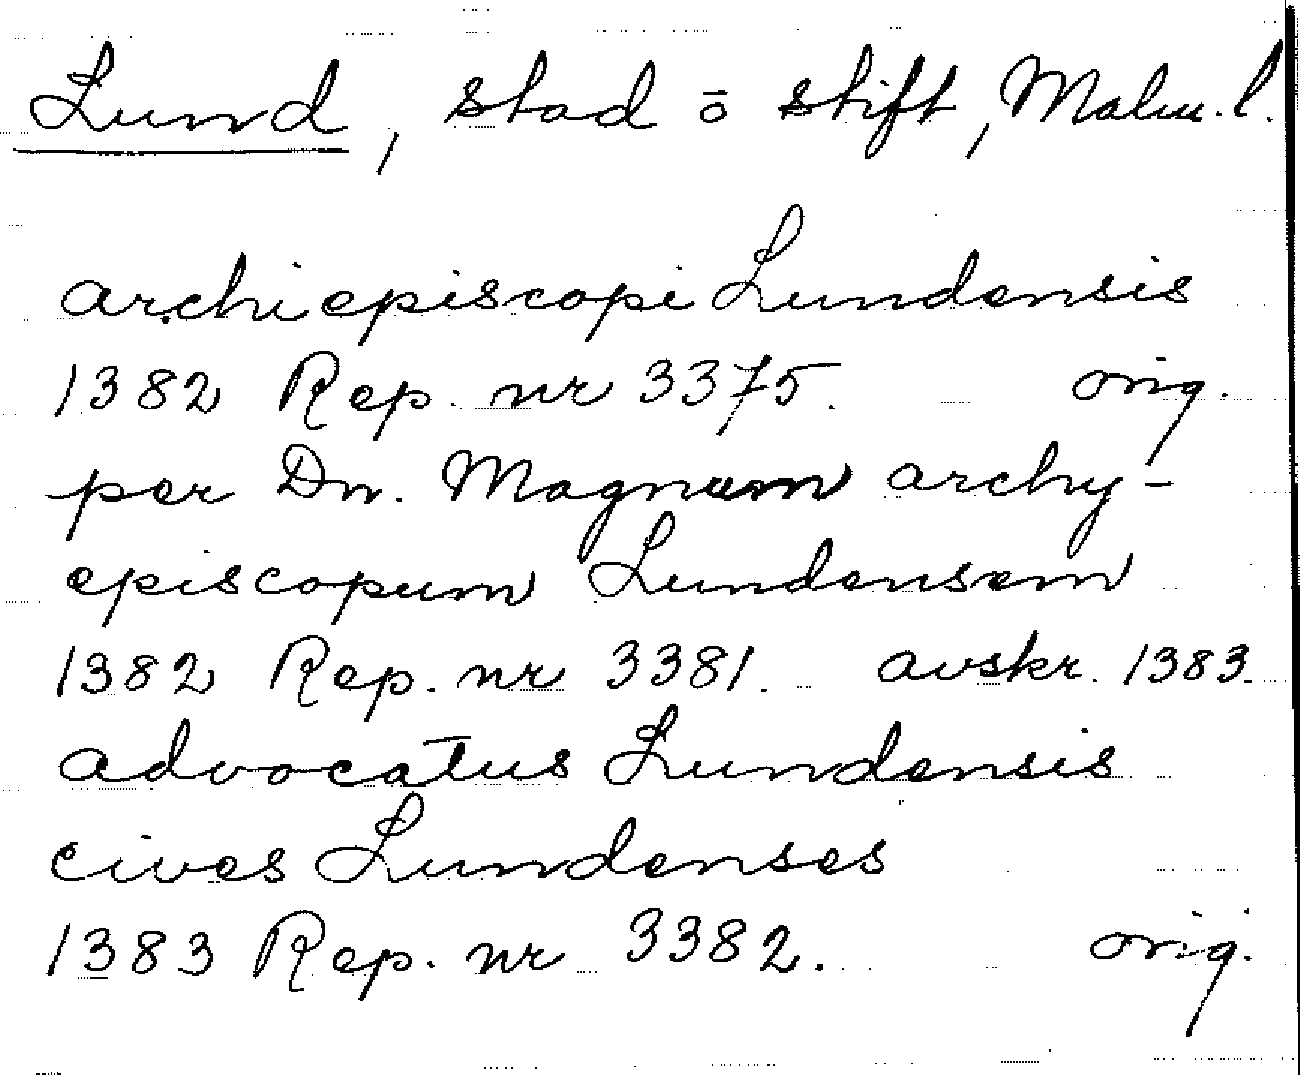 Lund, stad ō stift, Malm. l.
archiepiscopi Lundensis
1382 Rep. nr 3375. orig.
per Dn. Magnum archy-
episcopum Lundensem
1382 Rep. nr 3381. avskr. 1383.
advocatus Lundensis
cives Lundenses
1383 Rep. nr 3382. orig.